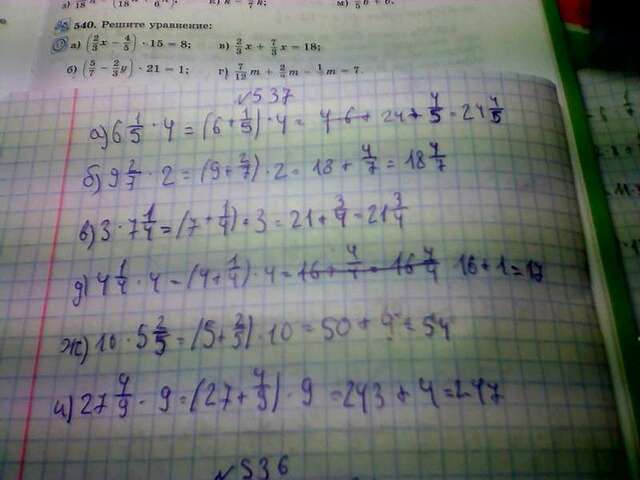 540. Решите уравнение:
а) (2/3 x − 4/5) · 15 = 8; в) 2/3 x + 7/3 x = 18;
б) (5/7 − 2/3 y) · 21 = 1; г) 7/12 m + 2/3 m − 1/4 m = 7.
№537
а) 6 1/5 · 4 = (6 + 1/5) · 4 = 24 + 4/5 = 24 4/5
б) 9 2/7 · 2 = (9 + 2/7) · 2 = 18 + 4/7 = 18 4/7
в) 3 · 7 1/4 = (7 + 1/4) · 3 = 21 + 3/4 = 21 3/4
д) 4 1/4 · 4 = (4 + 1/4) · 4 = 16 + 4/4 = 16 4/4 16 + 1 = 17
ж) 10 · 5 2/5 = (5 + 2/5) · 10 = 50 + 4 = 54
и) 27 4/9 · 9 = (27 + 4/9) · 9 = 243 + 4 = 247
№536